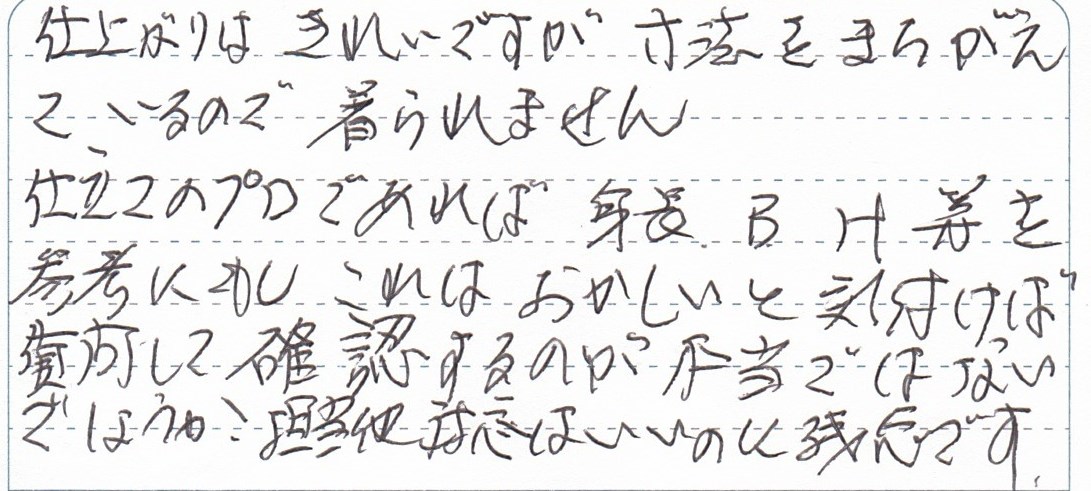 仕上がりは きれいですが 寸法をまちがえ
ているので 着られません
仕立てのプロであれば 身長、B H 等を
参考にもし これは おかしいと 気付けば
質問して 確認するのが 本当ではない
でしょうか? 担当他 対応はいいのに残念です。